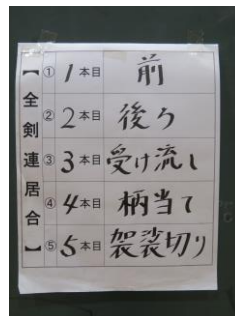 【全剣連居合】
① 1本目 前
② 2本目 後ろ
③ 3本目 受け流し
④ 4本目 柄当て
⑤ 5本目 袈裟切り